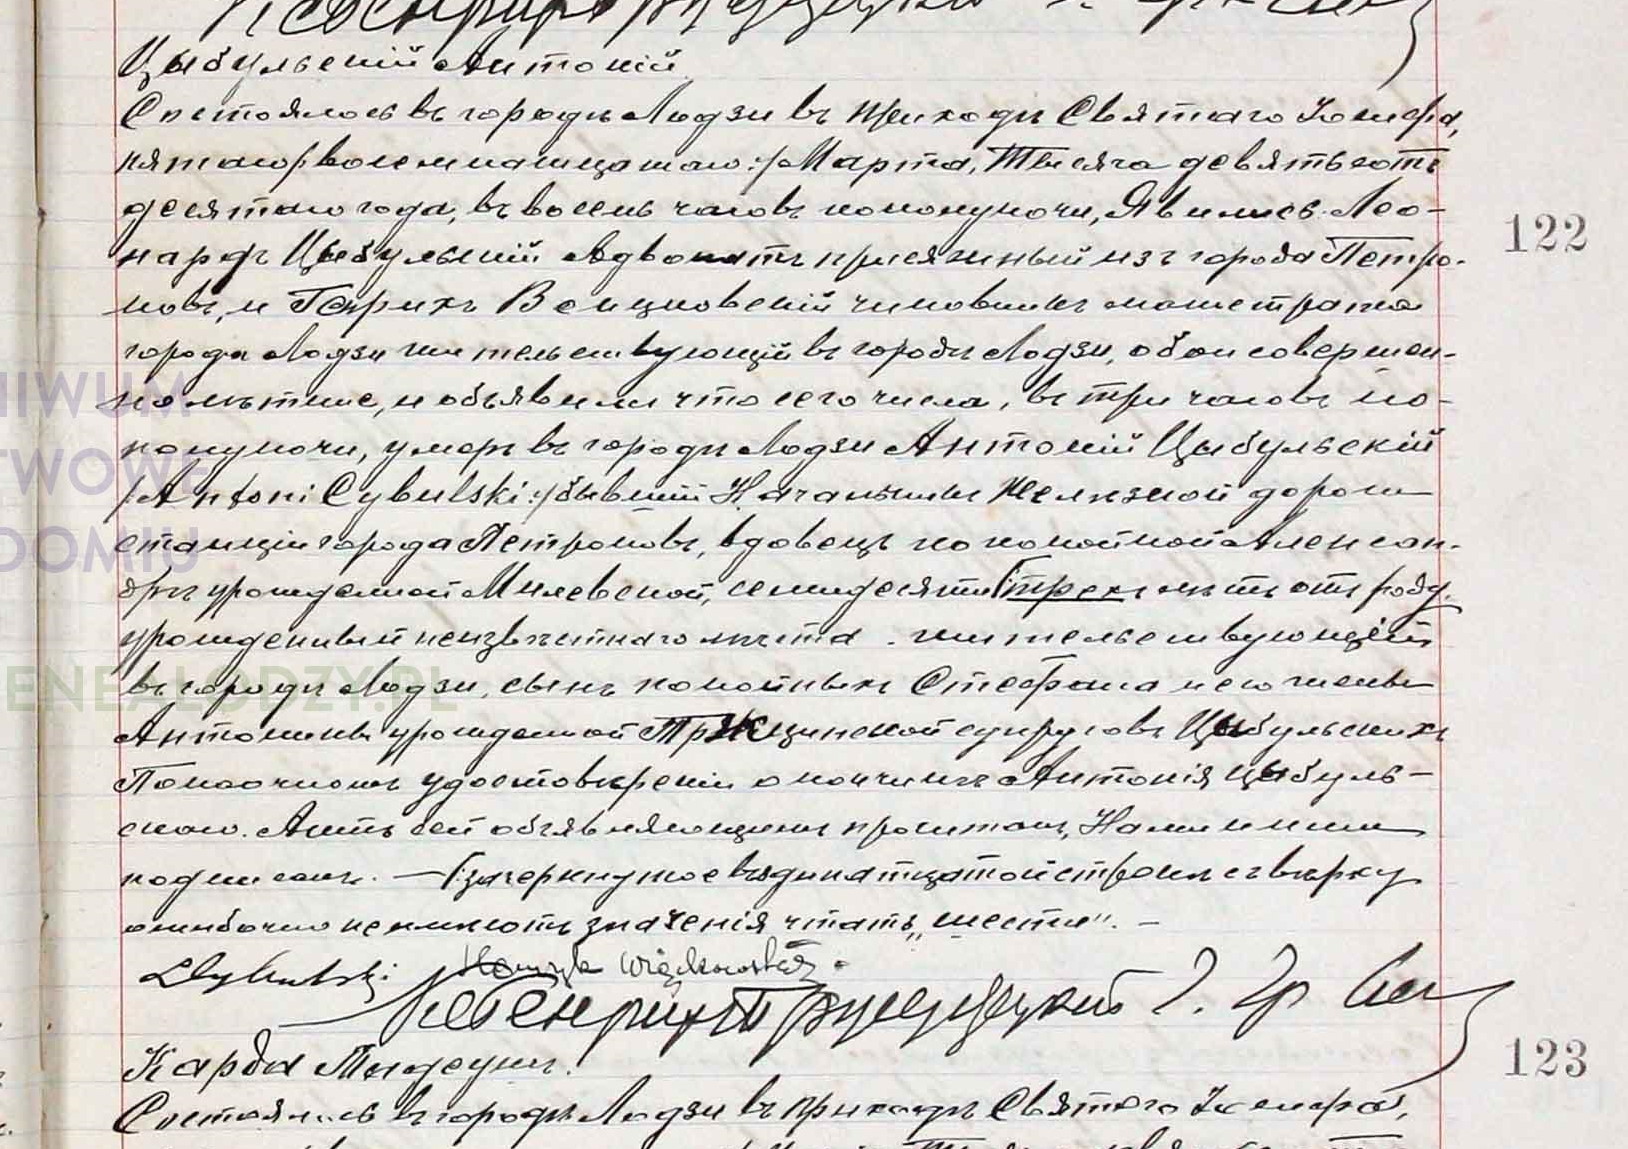 Цыбульскій Антоній
Состоялось въ городѣ Лодзи въ приходѣ Святаго Іосифа,
пятаго /восемнадцатаго:/ Марта, Тысяча девятьсотъ
десятаго года, въ восемь часовъ пополуночи, Явились: Лео-
нардъ Цыбульскій Адвокатъ присяжный изъ города Петро-
ковъ, и Генрихъ Венцковскій чиновникъ магистрата
города Лодзи жительствующій въ городѣ Лодзи, обои совершен-
нолѣтніе, и объявили что сего числа, въ три часовъ по-
полуночи, умеръ въ городѣ Лодзи Антоній Цыбульскій
/:Antoni Cybulski:/ бывшій Начальникъ Желѣзной дороги
станціи города Петроковъ, вдовецъ по покойной Алексан-
дрѣ урожденной Милевской, семидесяти трехъ лѣтъ отъ роду,
урожденный неизвѣстнаго мѣста. жительствующій
въ городѣ Лодзи, сынъ покойныхъ Стефана и его жены
Антонины урожденной Тржцинской супруговъ Цыбульскихъ
Понаочномъ удостовѣреніи о кончинѣ Антонія Цыбуль-
скаго. Актъ сей объявляющимъ прочитанъ, Нами и ими
подписанъ. — Зачеркнутое въ одинадцатой строкѣ съ верху
ошибочно не имѣютъ значенія читать „шести". —
LCybulski Henryk Więckowski
122
Карда Тадеушъ.
123
Состоялось въ городѣ Лодзи въ приходѣ Святого Іосифа,
ENEALODZY.PL